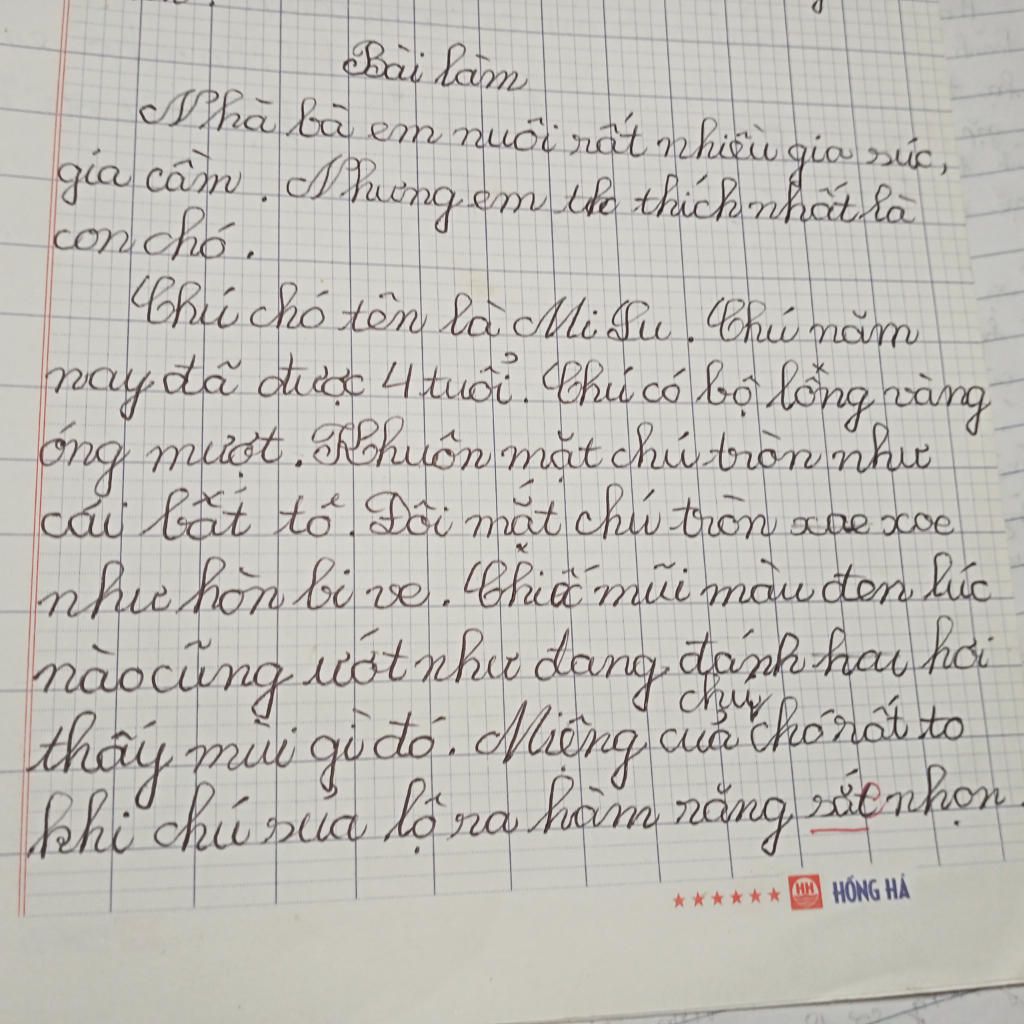 Bài làm
Nhà bà em nuôi rất nhiều gia súc,
gia cầm. Nhưng em thích nhất là
con chó.
Chú chó tên là Mi Su. Chú năm
nay đã được 4 tuổi. Chú có bộ lông vàng
óng mượt. Khuôn mặt chú tròn như
cái bát tô. Đôi mắt chú tròn xoe xoe
như hòn bi ve. Chiếc mũi màu đen lúc
nào cũng ướt như đang đánh hơi
thấy mùi gì đó. Miệng của chú chó rất to
khi chú sủa lộ ra hàm răng sắc nhọn.
HỒNG HÀ